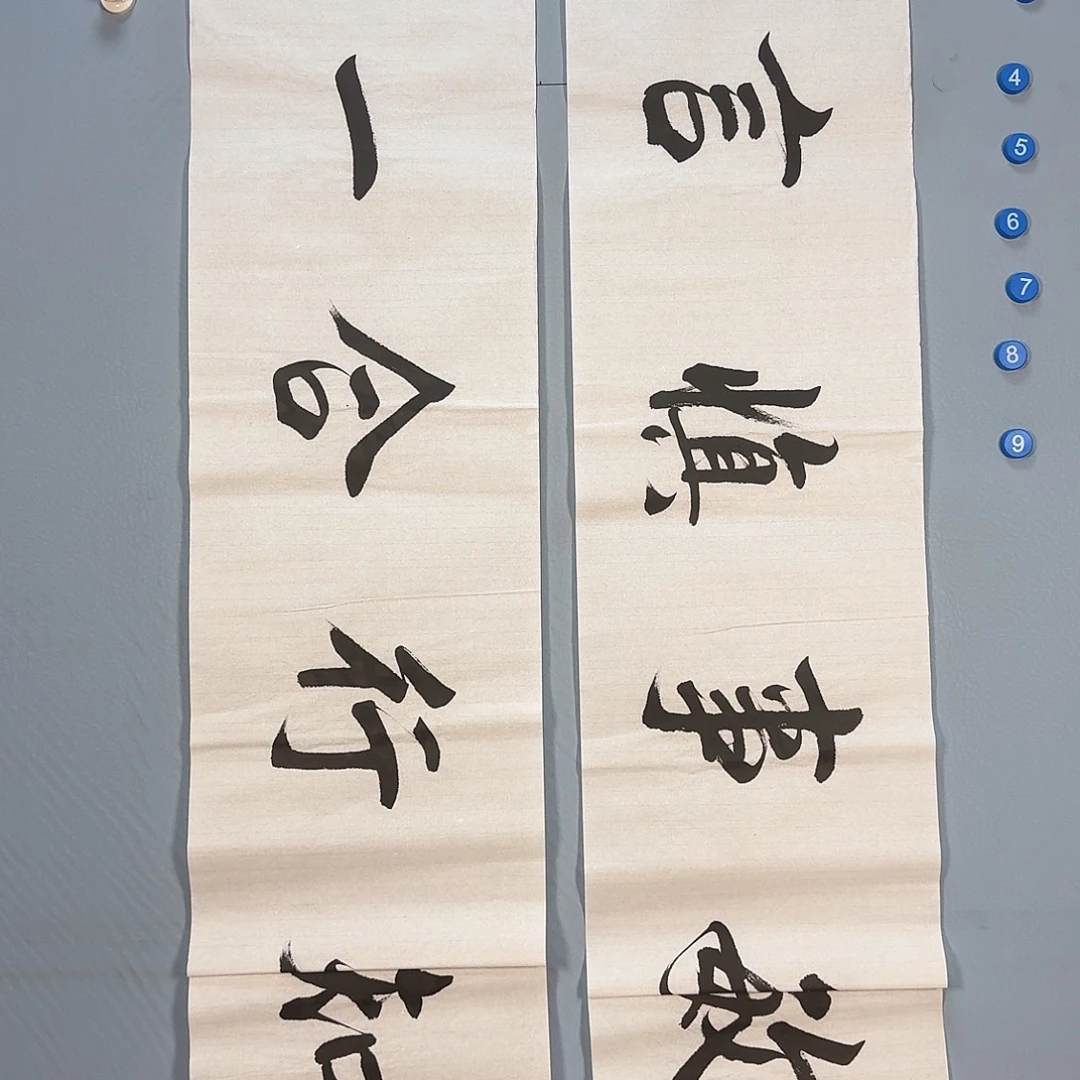 4 5 6 7 8 9
敏事慎言
知行合一